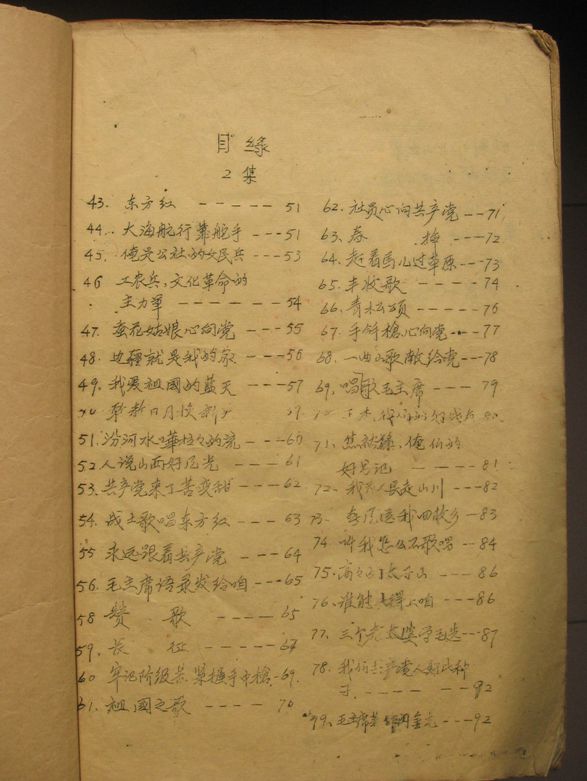 目录
2 集
43. 东方红 ----- 51
44. 大海航行靠舵手 --51
45. 俺是公社的女民兵 --53
46 工农兵，文化革命的
主力军 ------ 54
47. 姑娘心向党 --- 55
48. 边疆就是我的家 --- 56
49. 我爱祖國的蓝天 ---57
51. 汾河水哗啦啦的流 ---60
52 人说山西好风光 ---- 61
53. 共产党来了苦变甜 ---62
54. 战士歌唱东方红 --- 63
55 永远跟着共产党 --- 64
56. 毛主席语录发给咱 ---65
58 赞 歌 ---- 65
59. 长 征 ----- 67
60 牢记阶级 紧握手中槍 -69.
61. 祖國之歌 ---- 70
62. 社员心向共产党 --71
63. 春 ---72
64. 赶着马儿过草原 ---73
65. 丰收歌 ---- 74
66. 青松颂 ---- 76
67. 手 槍心向党 --- 77
68. 一曲山歌献给党 ---78
69. 唱歌毛主席 --- 79
71. 焦裕禄，俺们的
好书记 ----- 81
72. 我 人民走山川 ---82
73. 我回故乡 --83
74. 叫我怎么不歌唱 --84
75. 高高 太子山 ---- 86
76. 谁能 得上咱 --- 86
77. 三个老太婆学毛选 --87
78. 我们共产党人好比种
子 ------- 92
79. 毛主席 ---92